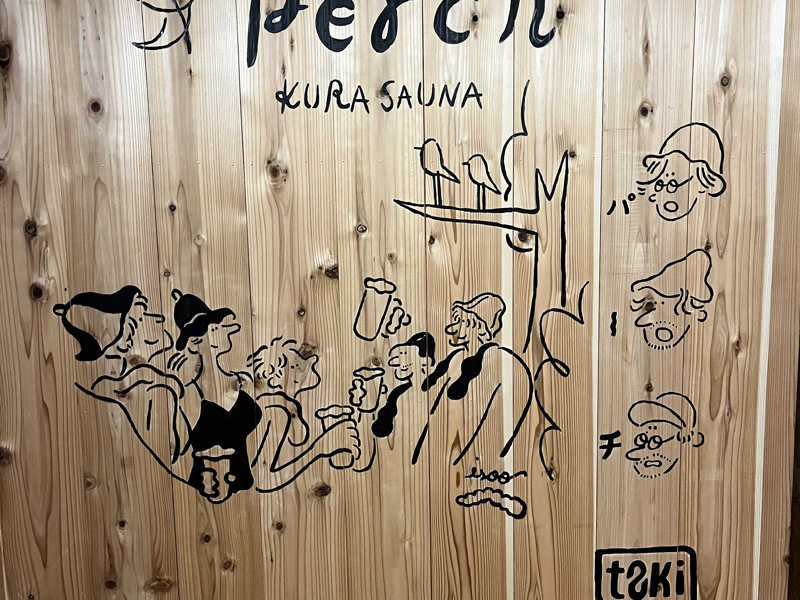 Perch
KURA SAUNA
パ
ー
チ
isoo
tSKi